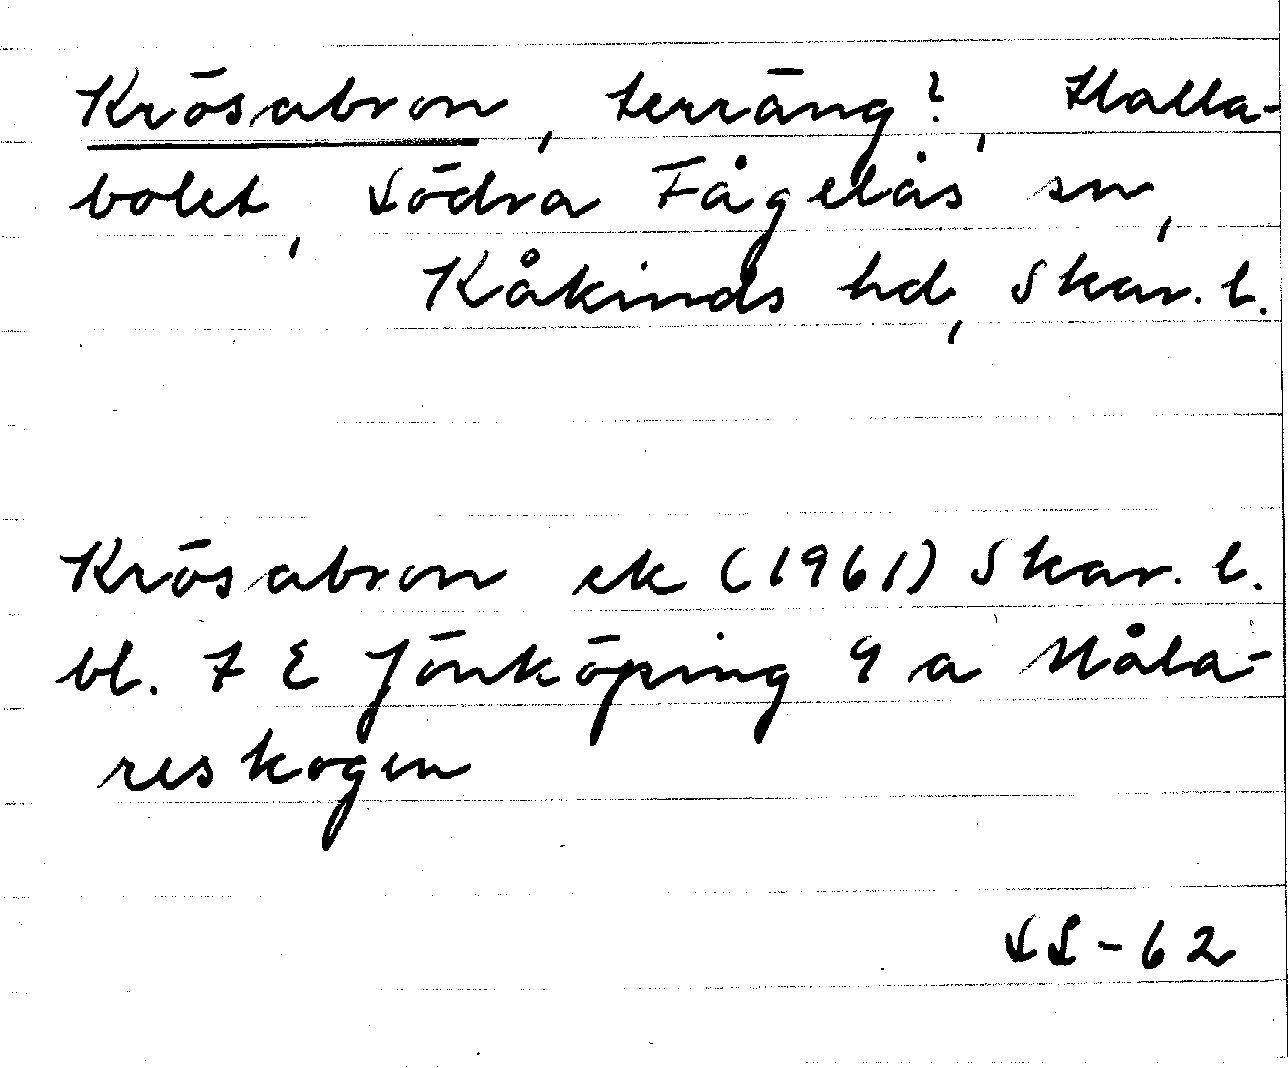 Krösabron, terräng?, Halla-
bolet, Södra Fågelås sn,
Kåkinds hd, Skar. l.
Krösabron ek (1961) Skar. l.
bl. 7 E Jönköping 9 a Måla-
reskogen
SS-62